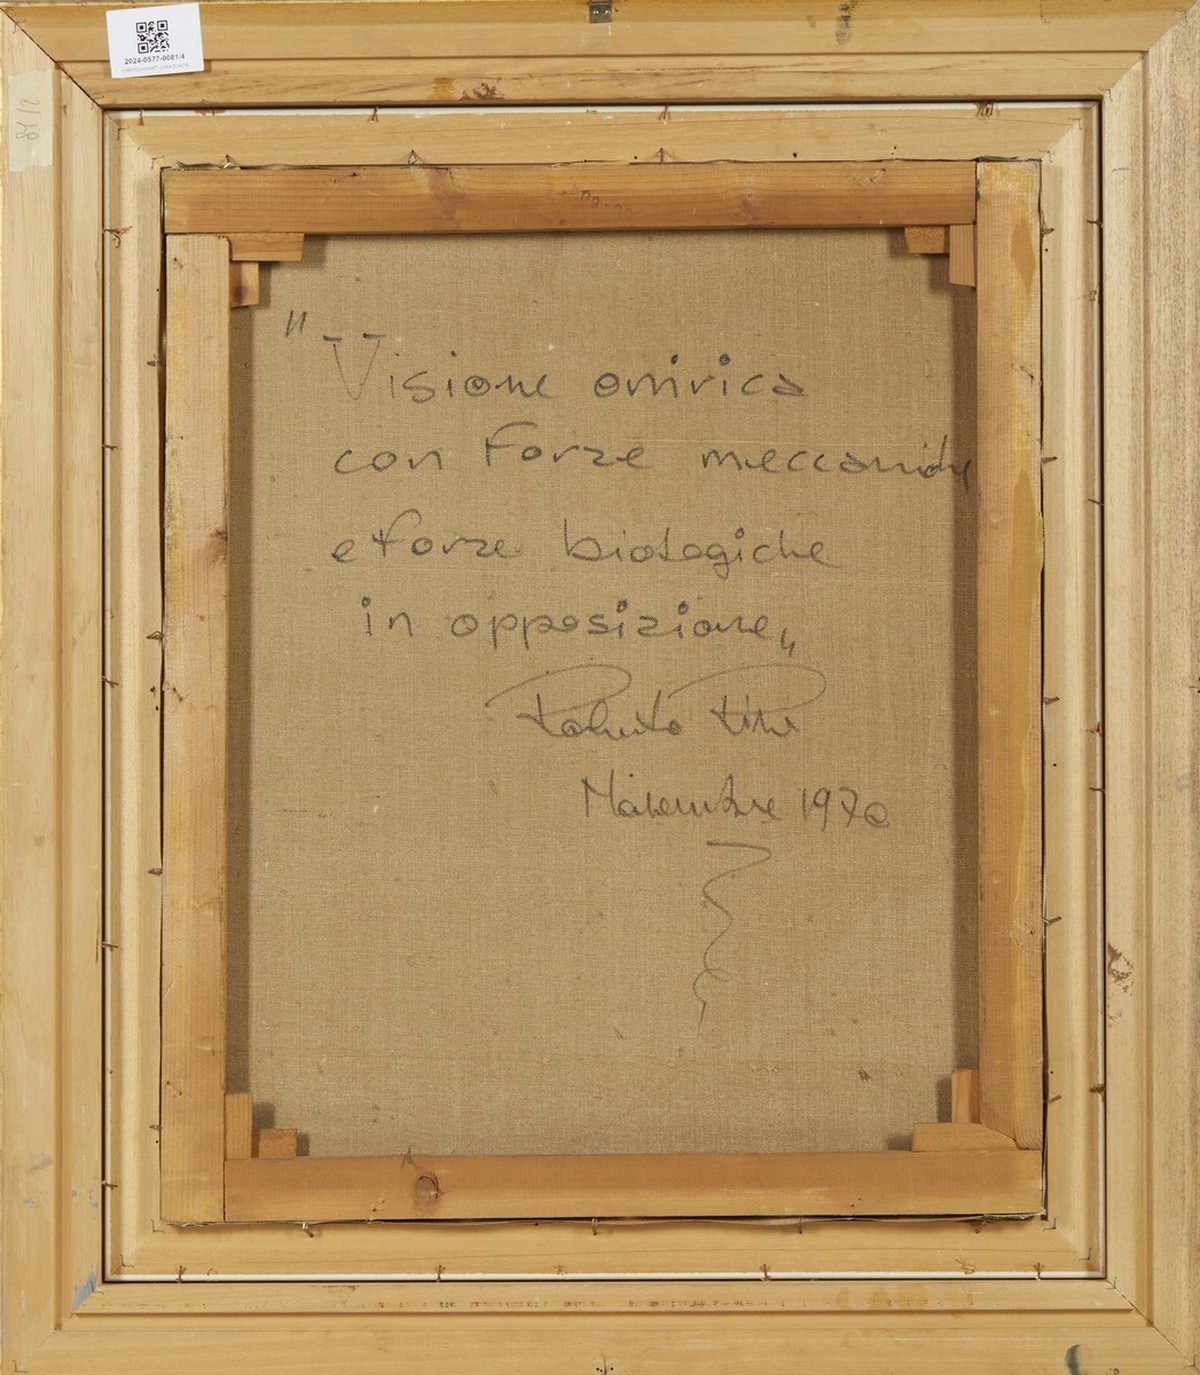 2024-0577-0081/4
81/2
"Visione onirica
con Forze meccaniche
e forze biologiche
in opposizione"
Novembre 1970